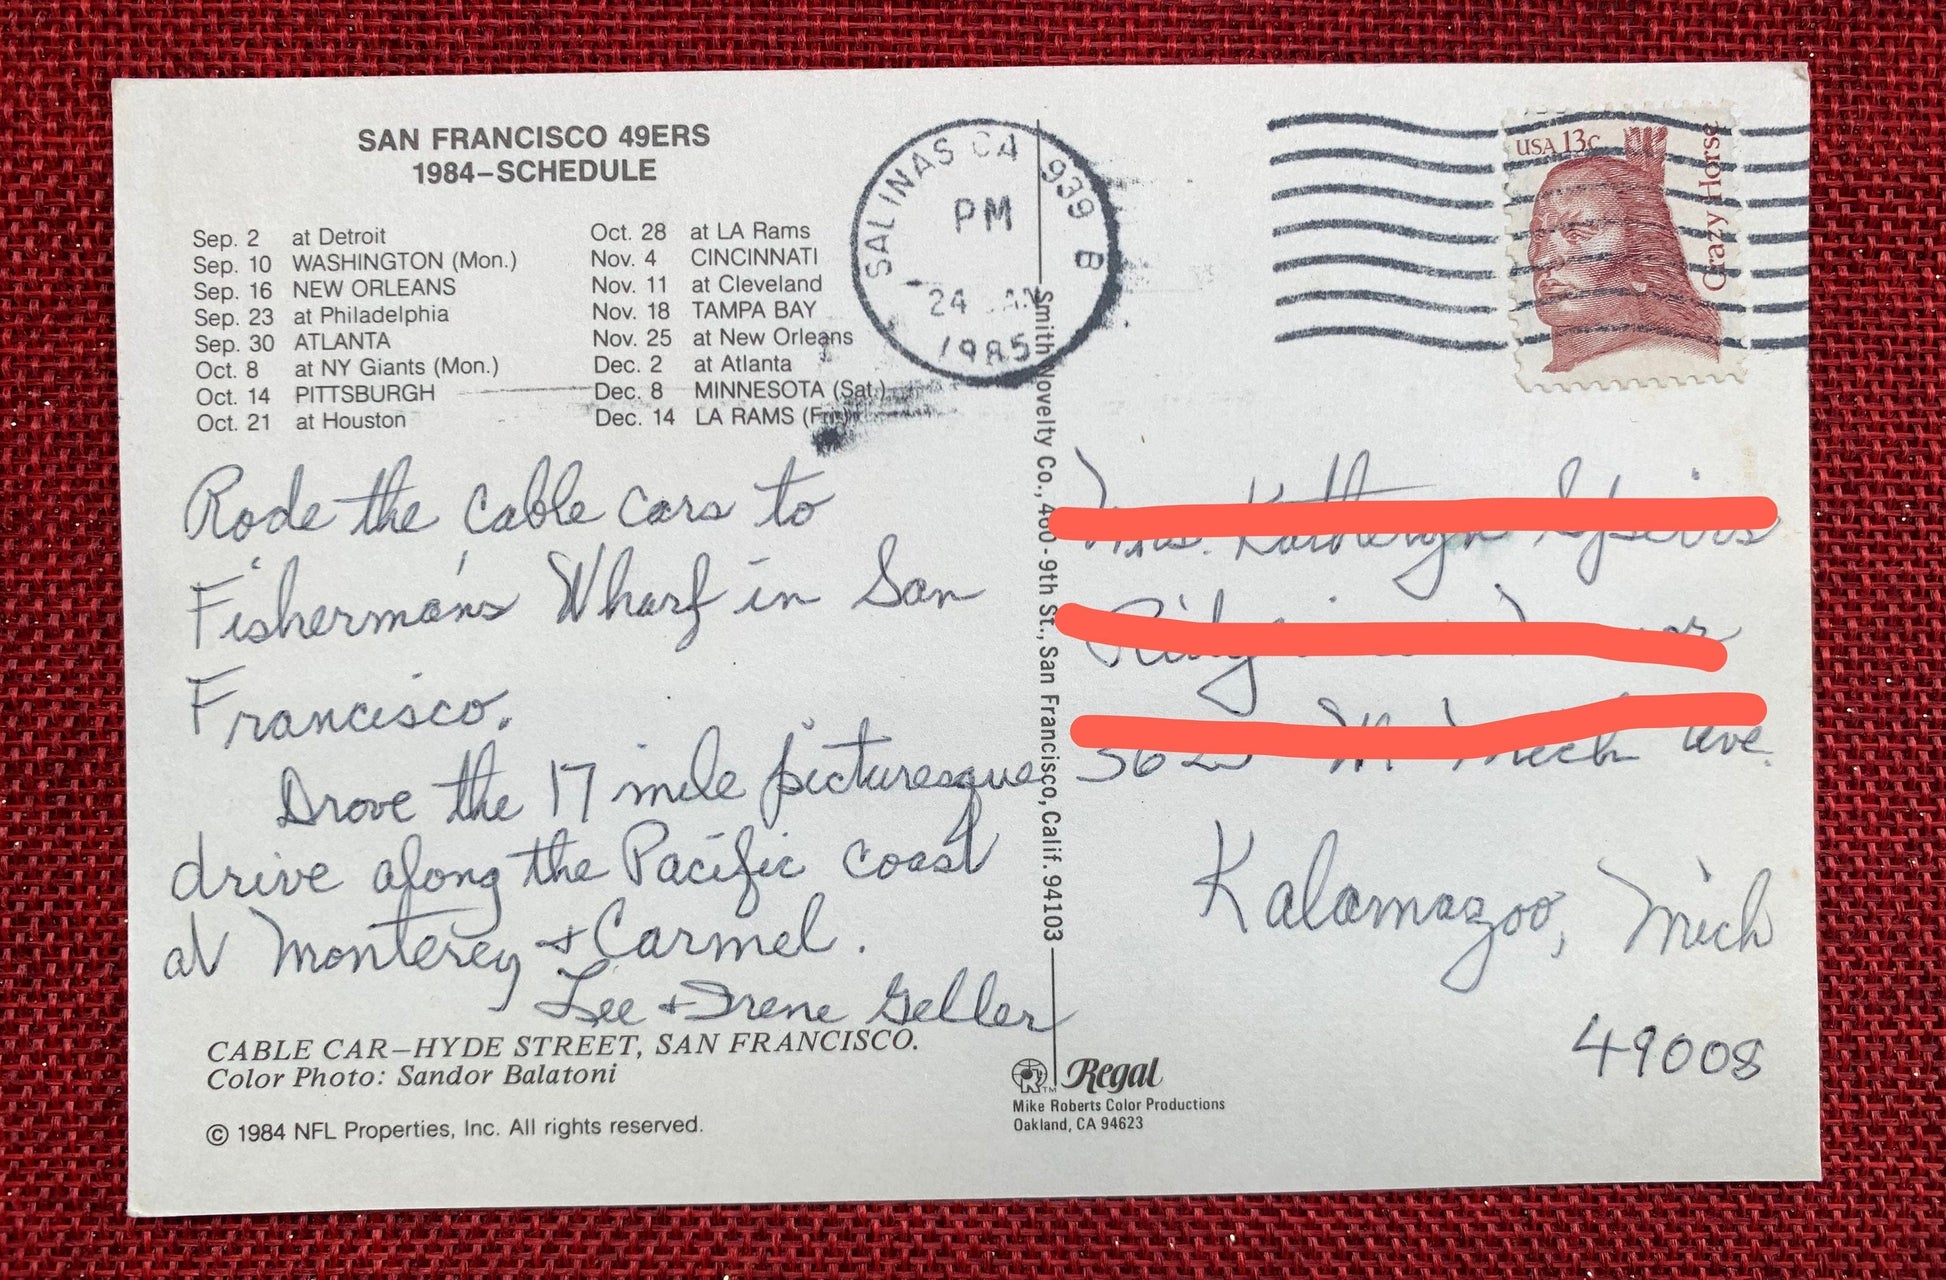 SAN FRANCISCO 49ERS
1984–SCHEDULE
Sep. 2 at Detroit
Sep. 10 WASHINGTON (Mon.)
Sep. 16 NEW ORLEANS
Sep. 23 at Philadelphia
Sep. 30 ATLANTA
Oct. 8 at NY Giants (Mon.)
Oct. 14 PITTSBURGH
Oct. 21 at Houston
Oct. 28 at LA Rams
Nov. 4 CINCINNATI
Nov. 11 at Cleveland
Nov. 18 TAMPA BAY
Nov. 25 at New Orleans
Dec. 2 at Atlanta
Dec. 8 MINNESOTA (Sat.)
Dec. 14 LA RAMS (Fri.)
SALINAS CA 939 B
PM
24 JAN
1985
USA 13c
Crazy Horse
Rode the cable cars to
Fisherman's Wharf in San
Francisco.
Drove the 17 mile picturesque
drive along the Pacific coast
at Monterey + Carmel.
Lee + Irene Geller
CABLE CAR–HYDE STREET, SAN FRANCISCO.
Color Photo: Sandor Balatoni
© 1984 NFL Properties, Inc. All rights reserved.
Smith Novelty Co., 460 - 9th St., San Francisco, Calif. 94103
Regal
TM
Mike Roberts Color Productions
Oakland, CA 94623
Ave.
Kalamazoo, Mich
49008